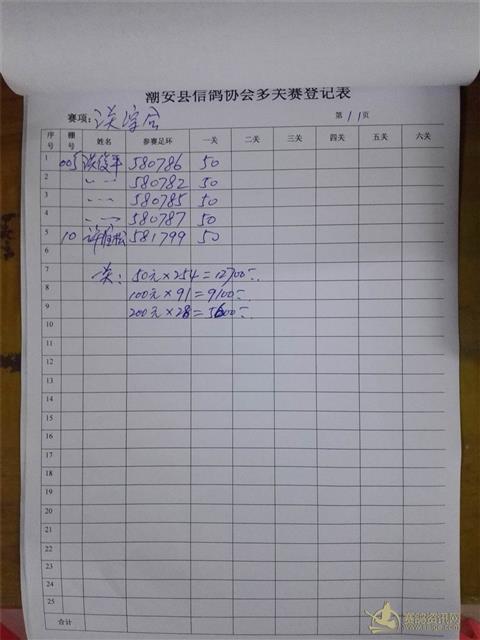 潮安县信鸽协会多关赛登记表
赛项: 综合 第 11 页
序号 棚号 姓名 参赛足环 一关 二关 三关 四关 五关 六关
1 005 洪俊平 580786 50
2 〃 一 580782 50
3 〃 一 580785 50
4 〃 一 580787 50
5 10 580 581799 50
6
7 一关: 50元×254=12700元
8 100元×91=9100元
9 200元×28=5600元
10
11
12
13
14
15
16
17
18
19
20
21
22
23
24
25
合计
赛鸽资讯网